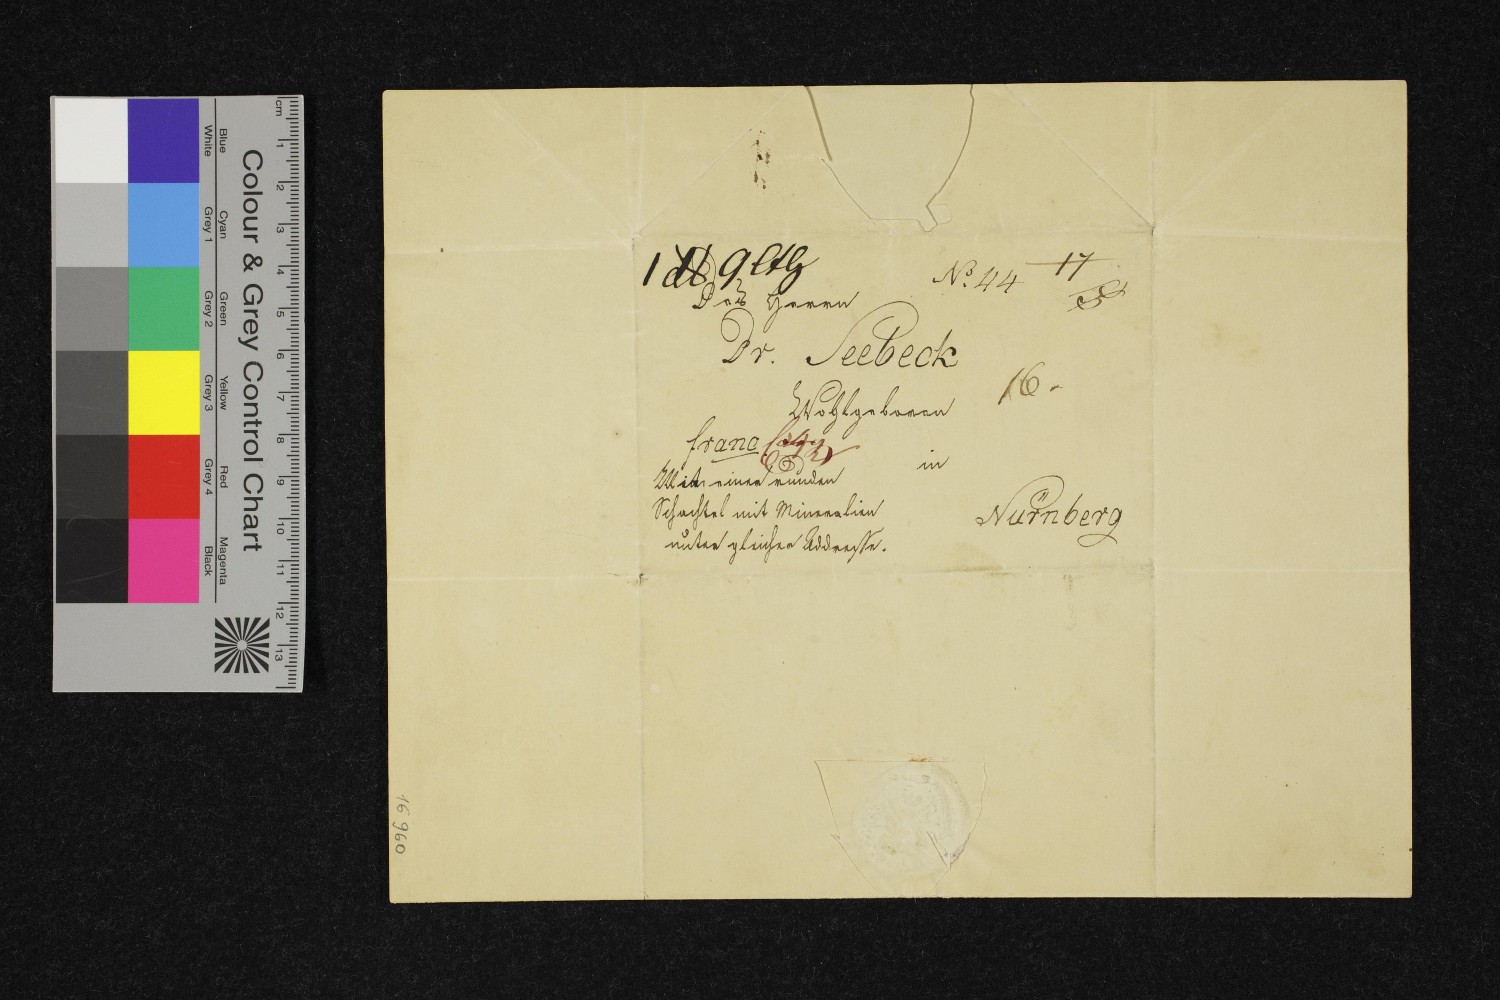 1 ℔ 9 lth
No. 44
17
Des Herrn
Dr. Seebeck
16 -
Wohlgeboren
franc
in
Mit einer runden
Schachtel mit Mineralien
Nürnberg
unter gleicher Addresse.
16 960
Colour & Grey Control Chart
Blue Cyan Green Yellow Red Magenta
White Grey 1 Grey 2 Grey 3 Grey 4 Black
cm 1 2 3 4 5 6 7 8 9 10 11 12 13